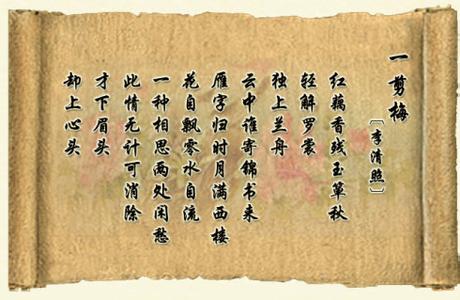 一剪梅
［李清照］
红藕香残玉簟秋
轻解罗裳
独上兰舟
云中谁寄锦书来
雁字归时月满西楼
花自飘零水自流
一种相思两处闲愁
此情无计可消除
才下眉头
却上心头